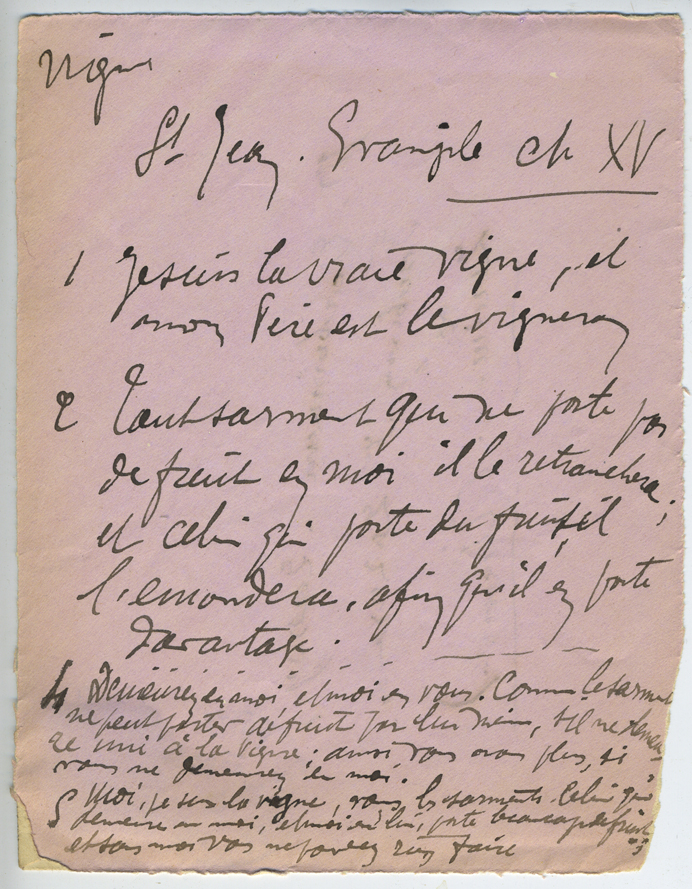 Vigne
St Jean. Evangile ch XV
1 Je suis la vraie vigne, et
mon Père est le vigneron
2 Tout sarment qui ne porte pas
de fruit en moi il le retranchera ;
et celui qui porte du fruit, il
l'emondera, afin qu'il en porte
davantage.
4 Demeurez en moi, et moi en vous. Comme le sarment
ne peut porter de fruit par lui même, s'il ne demeu-
re uni à la vigne : ainsi vous non plus, si
vous ne demeurez en moi.
5 Moi, je suis la vigne, vous, les sarments. Celui qui
demeure en moi, et moi en lui, porte beaucoup de fruit
et sans moi vous ne pouvez rien faire